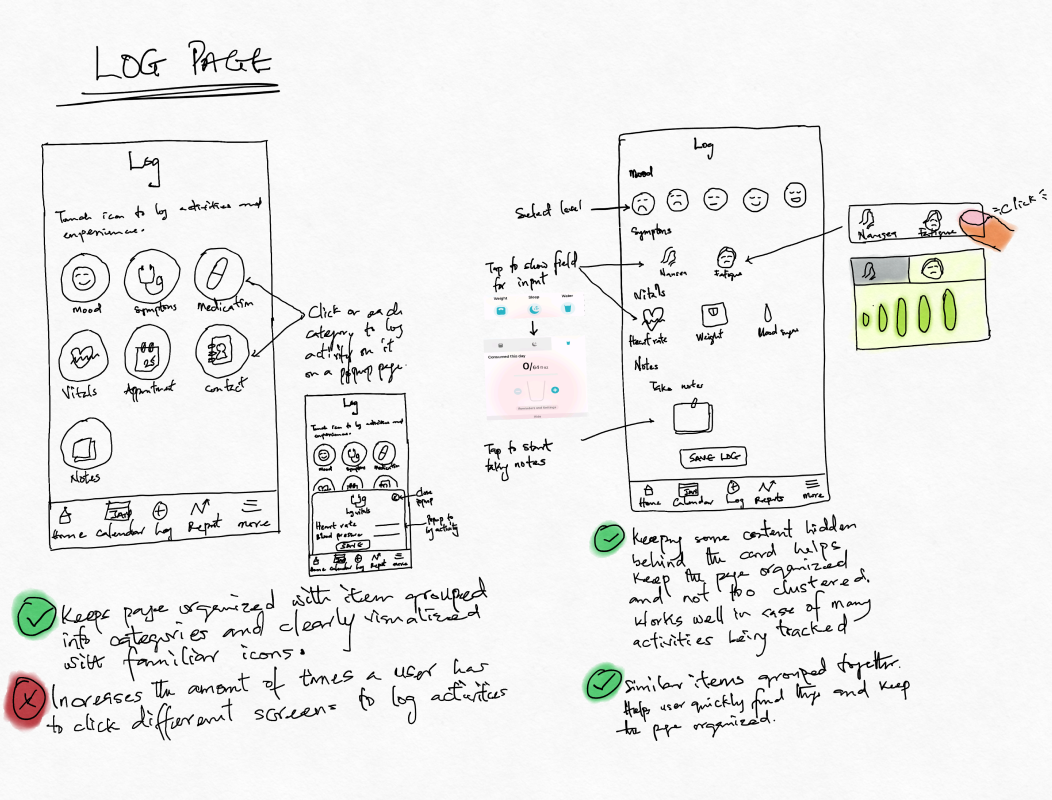 LOG PAGE
Log
Touch icon to log activities and
experience.
Mood
Symptoms
Medication
Vitals
Appointment
Contact
Notes
Home
Calendar
Log
Report
more
Click on each
category to log
activity on it
on a popup page.
Log
Touch icon to log activities and
experience.
Mood
Symptoms
Medication
Log
Log vitals
Heart rate
Blood pressure
SAVE
Home
Calendar
Log
Report
more
Close
popup
Popup to
log activity
Keeps page organized with item grouped
into categories and clearly visualized
with familiar icons.
Increases the amount of times a user has
to click different screens to log activities
Log
Mood
Select level
Symptoms
Nausea
Fatigue
Tap to show field
for input
Vitals
Heart rate
Weight
Blood sugar
Notes
Take notes
SAVE LOG
Tap to start
taking notes
Home
Calendar
Log
Reports
more
Weight
Sleep
Water
Consumed this day
0/64 fl oz
Nausea
Fatigue
Click
Keeping some content hidden
behind the card helps
keep the page organized
and not too clustered.
Works well in case of many
activities being tracked
Similar items grouped together.
Helps user quickly find things and keep
the page organized.